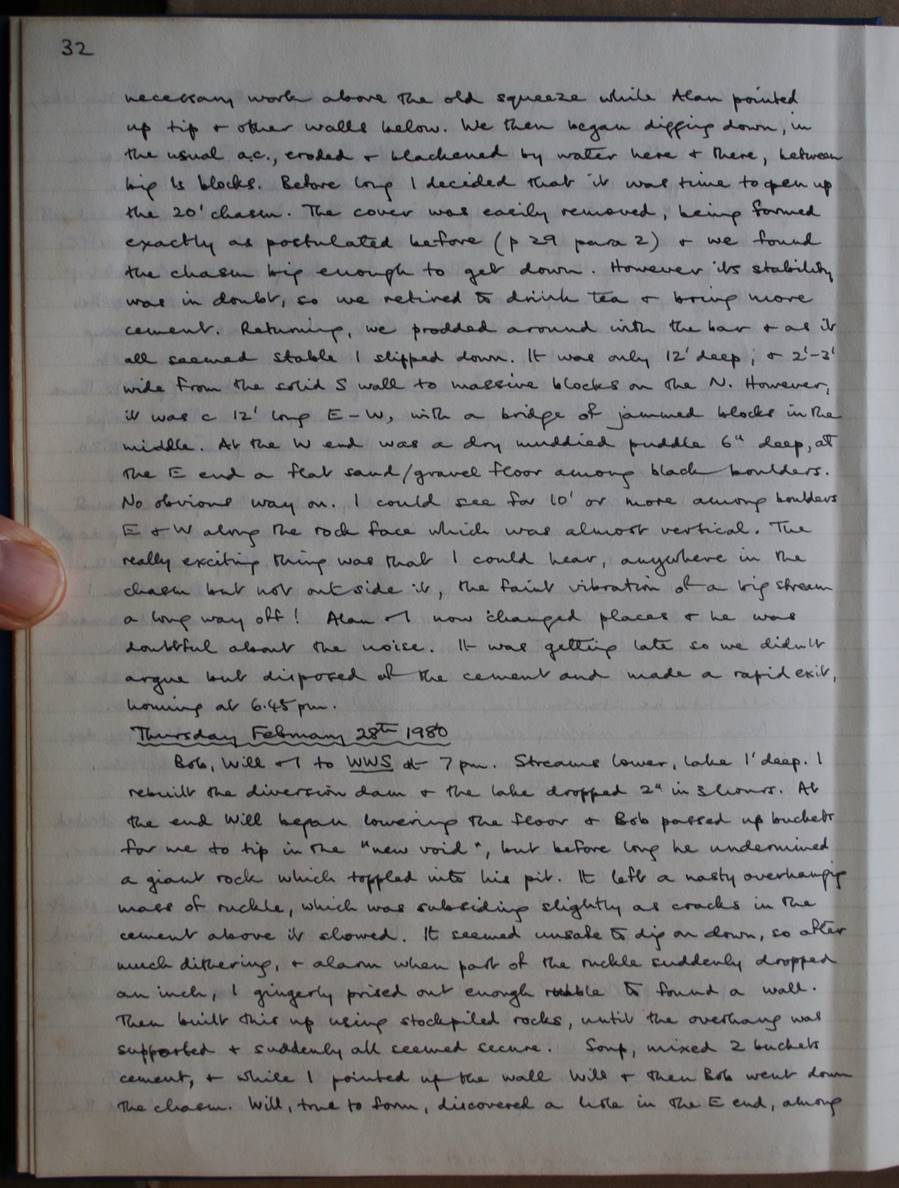 32
necessary work above the old squeeze while Alan pointed
up tip + other walls below. We then began digging down, in
the usual a.c., eroded + blackened by water here + there, between
big ls blocks. Before long I decided that it was time to open up
the 20' chasm. The cover was easily removed, being formed
exactly as postulated before (p 29 para 2) + we found
the chasm big enough to get down. However its stability
was in doubt, so we retired to drink tea + bring more
cement. Returning, we prodded around with the bar + as it
all seemed stable I slipped down. It was only 12' deep, + 2'-3'
wide from the solid S wall to massive blocks on the N. However,
it was c 12' long E-W, with a bridge of jammed blocks in the
middle. At the W end was a dry muddied puddle 6" deep, at
the E end a flat sand/gravel floor among black boulders.
No obvious way on. I could see for 10' or more among boulders
E + W along the rock face which was almost vertical. The
really exciting thing was that I could hear, anywhere in the
chasm but not outside it, the faint vibration of a big stream
a long way off! Alan + I now changed places + he was
doubtful about the noise. It was getting late so we didn't
argue but disposed of the cement and made a rapid exit,
homing at 6.45 pm.
Thursday February 28th 1980
Bob, Will + I to WWS at 7 pm. Streams lower, lake 1' deep. I
rebuilt the diversion dam + the lake dropped 2" in 3 hours. At
the end Will began lowering the floor + Bob passed up buckets
for me to tip in the "new void", but before long he undermined
a giant rock which toppled into his pit. It left a nasty overhanging
mass of ruckle, which was subsiding slightly as cracks in the
cement above it showed. It seemed unsafe to dig on down, so after
much dithering, + alarm when part of the ruckle suddenly dropped
an inch, I gingerly prised out enough rubble to found a wall.
Then built this up using stockpiled rocks, until the overhang was
supported + suddenly all seemed secure. Soup, mixed 2 buckets
cement, + while I pointed up the wall Will + then Bob went down
the chasm. Will, true to form, discovered a hole in the E end, among